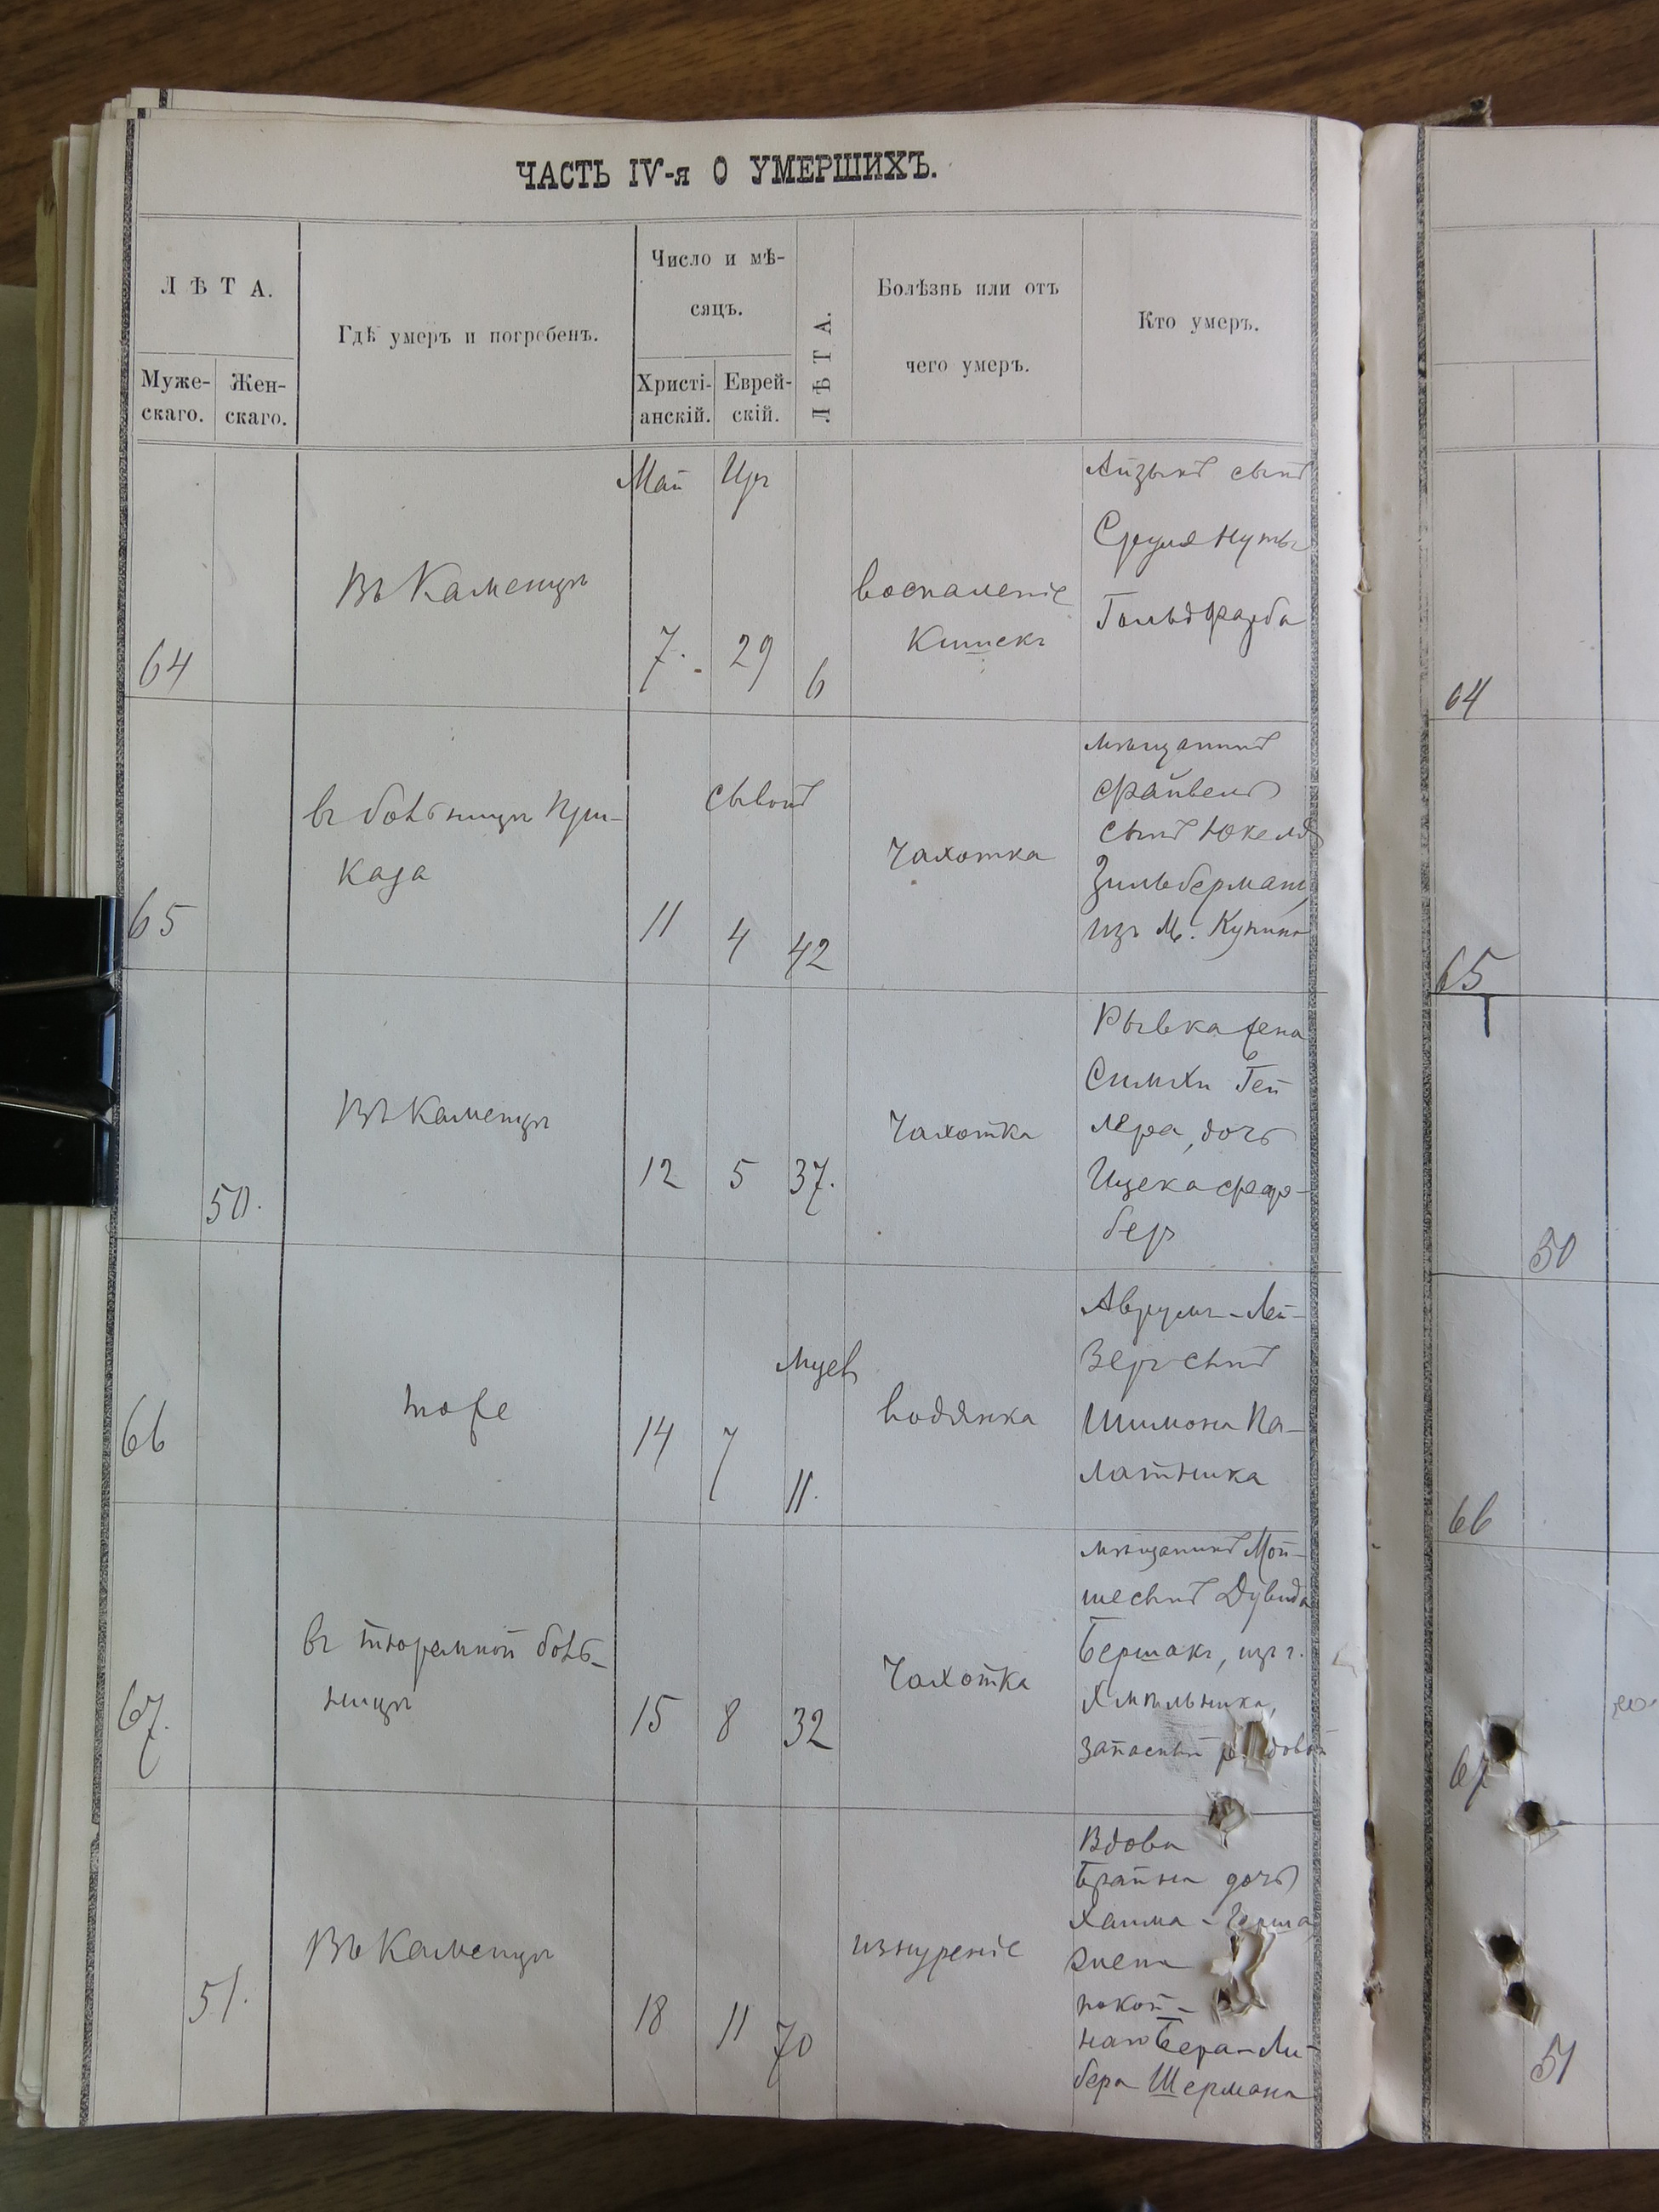 ЧАСТЬ IV-я О УМЕРШИХЪ.
ЛѢТА.
Муже-
скаго.
Жен-
скаго.
Гдѣ умеръ и погребенъ.
Число и мѣ-
сяцъ.
Христі-
анскій.
Еврей-
скій.
ЛѢТА.
Болѣзнь или отъ
чего умеръ.
Кто умеръ.
Май Иръ
64
Въ Каменцѣ
7. 29 6
воспаленіе
кишекъ
Айзыкъ сынъ
Сруля Нуты
Гольдфарба
64
65
въ больницѣ При-
каза
Сывонъ
11 4 42
Чахотка
мѣщанинъ
Файвель
сынъ Юкеля
Зильберманъ,
изъ м. Купина
65
50.
Въ Каменцѣ
12 5 37.
Чахотка
Рывка жена
Симхи Гей
лера, дочь
Ицека Фар-
бер
50
66
тоже
14 7
Мцев
11.
водянка
Аврумъ-Лей-
зеръ сынъ
Шимона Па-
латника
66
67.
въ тюремной боль-
ницѣ
15 8 32
Чахотка
мѣщанинъ Мой-
ше сынъ Дувида
Бершакъ, изъ г.
Хмѣльника,
запасный рядовой
67
51.
Въ Каменцѣ
18 11 70
изнуреніе
Вдова
Брайна дочь
Хаима-Герша
покой-
наго Бера-Ли-
бера Шермана
51